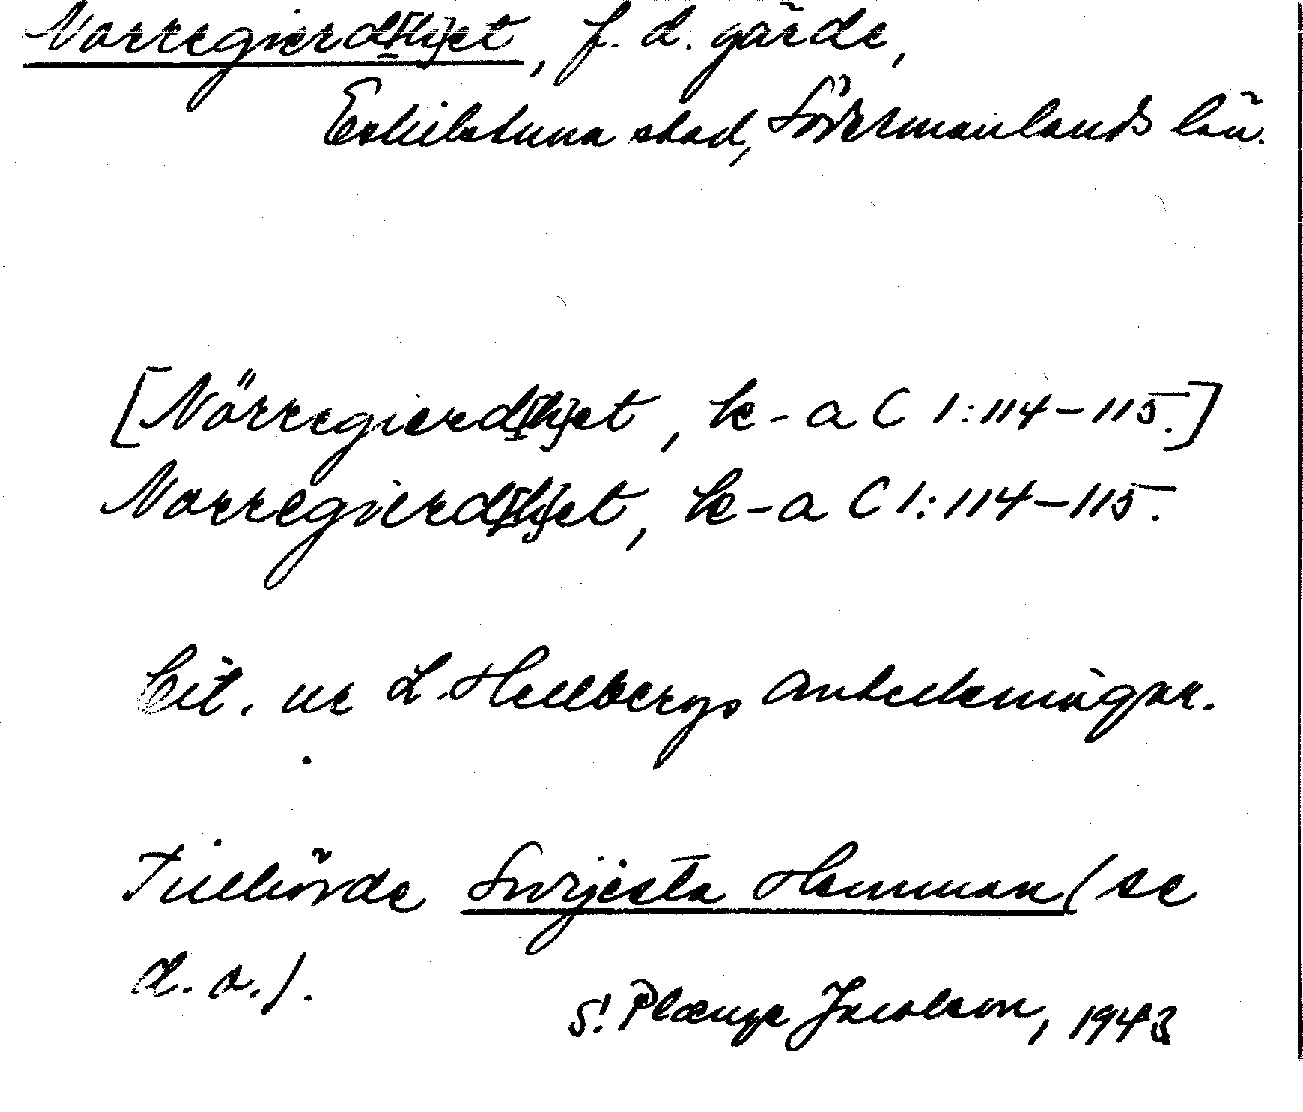 Norregierd[h]et, f. d. gärde,
Eskilstuna stad, Södermanlands län.
[Nörregierd[h]et, k-a C 1:114-115.]
Norregierd[h]et, k-a C 1:114-115.
Cit. ur L. Hellbergs anteckningar.
Tillhörde Swrjesta Hemman (se
d. o.).
S. Plænge Jacobson, 1943